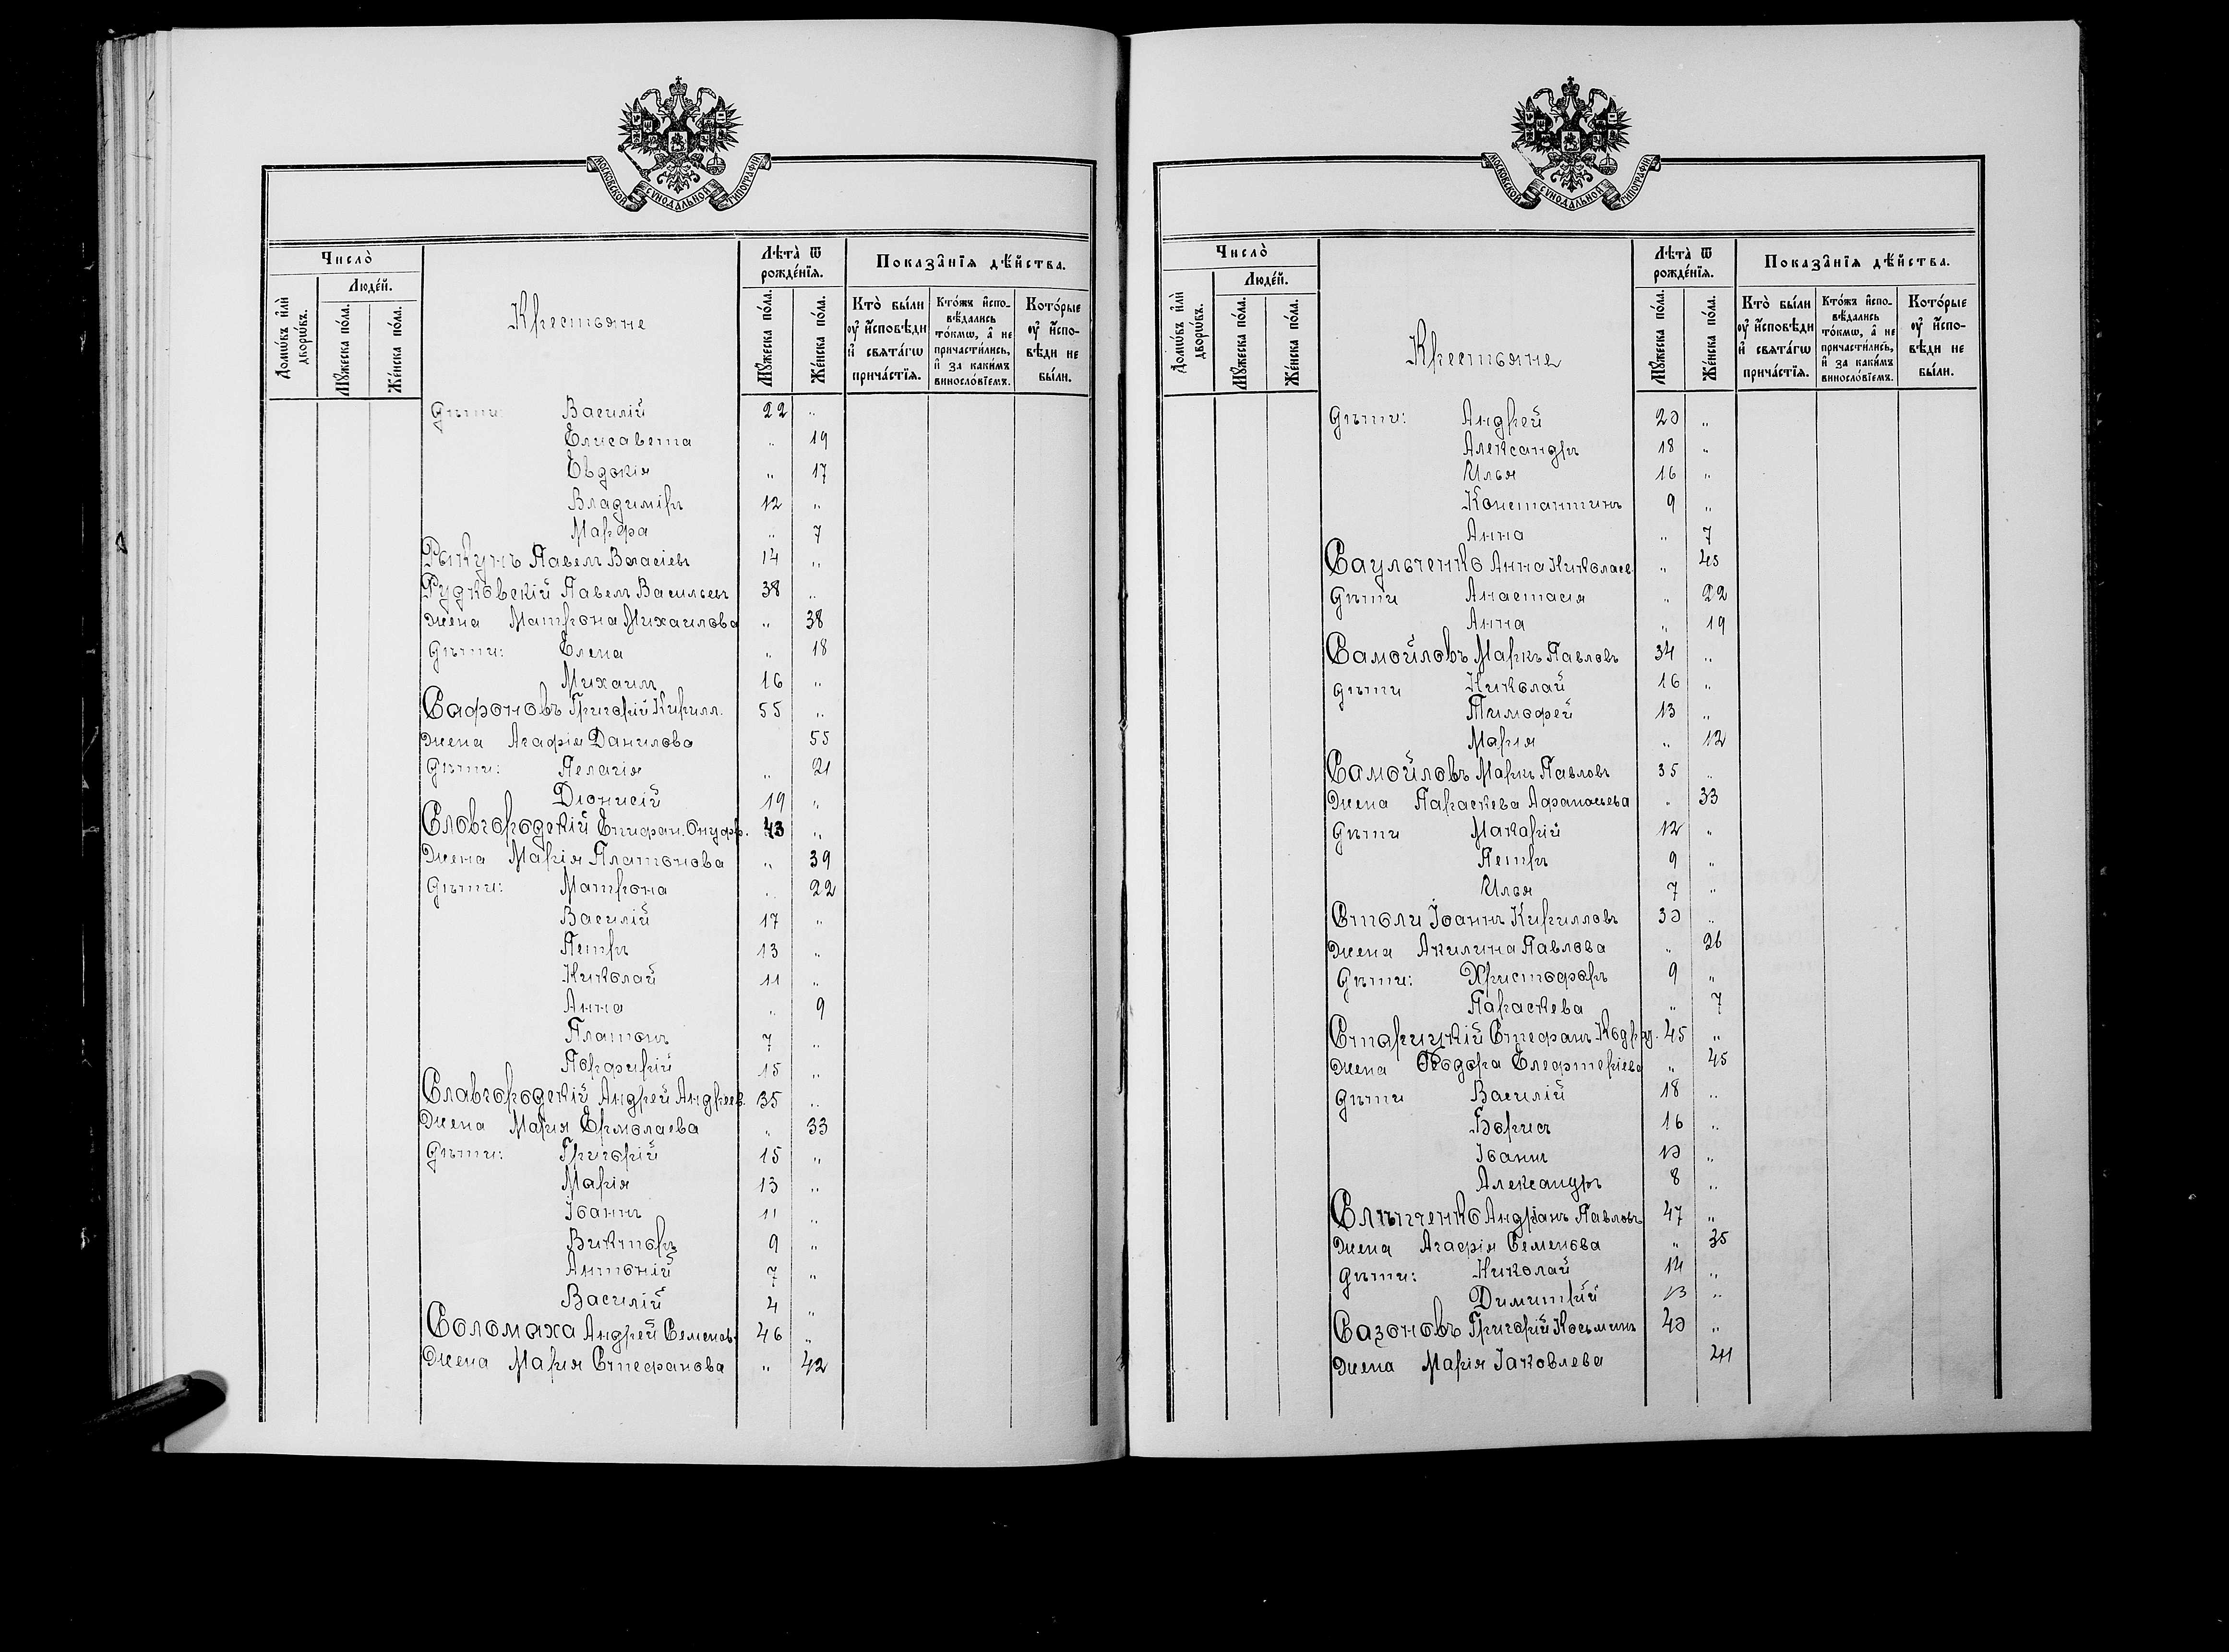 МОСКОВСКОЙ СѴНОДАЛЬНОЙ ТИПОГРАФІИ
Число̀
Людей.
Домѡвъ и҆лѝ дворѡвъ.
Мꙋжеска по́ла.
Же́нска по́ла.
Крестьяне
Лѣта̀ ѿ рожде́нїѧ.
Мꙋжеска по́ла.
Же́нска по́ла.
Показа̑нїѧ дѣ́йства.
Кто̀ бы́ли ᲂу҆ и҆сповѣди и҆ свѧта́гѡ прича́стїѧ.
Кто́жъ и҆спо- вѣ́дались то́кмѡ, а҆ не причасти́лись, и҆ за каки́мъ виносло́вїемъ.
Кото́рые ᲂу҆ и҆спо- вѣди не бы́ли.
Дѣти: Василій 22 „
Елисавета „ 19
Евдокія „ 17
Владиміръ 12 „
Марфа „ 7
Павелъ Власіевъ 14 „
Рудковскій Павелъ Васильевъ 38 „
Жена Матрона Михаилова „ 38
Дѣти: Елена „ 18
Михаилъ 16 „
Сафоновъ Григорій Кирилл. 55 „
Жена Агафія Данилова 55
Дѣти: Пелагія „ 21
Діонисій 19 „
Словгородскій Епифан. Онуфр. 43 „
Жена Марія Платонова „ 39
Дѣти: Матрона „ 22
Василій 17 „
Петръ 13 „
Николай 11 „
Анна „ 9
Платонъ 7 „
Порфирій 15 „
Славгородскій Андрей Андреев. 35 „
Жена Марія Ермолаева „ 33
Дѣти: Григорій 15 „
Марія 13 „
Іоаннъ 11 „
Викторъ 9 „
Антоній 7 „
Василій 4 „
Соломаха Андрей Семенов. 46 „
Жена Марія Стефанова „ 42
МОСКОВСКОЙ СѴНОДАЛЬНОЙ ТИПОГРАФІИ
Число̀
Людей.
Домѡвъ и҆лѝ дворѡвъ.
Мꙋжеска по́ла.
Же́нска по́ла.
Крестьяне
Лѣта̀ ѿ рожде́нїѧ.
Мꙋжеска по́ла.
Же́нска по́ла.
Показа̑нїѧ дѣ́йства.
Кто̀ бы́ли ᲂу҆ и҆сповѣди и҆ свѧта́гѡ прича́стїѧ.
Кто́жъ и҆спо- вѣ́дались то́кмѡ, а҆ не причасти́лись, и҆ за каки́мъ виносло́вїемъ.
Кото́рые ᲂу҆ и҆спо- вѣди не бы́ли.
Дѣти: Андрей 20 „
Александръ 18 „
Илья 16 „
Константинъ 9 „
Анна „ 7
Саульченко Анна Николаев. „ 45
Дѣти Анастасія „ 22
Анна „ 19
Самойловъ Маркъ Павловъ 34 „
Дѣти Николай 16 „
Тимофей 13 „
Марія „ 12
Самойловъ Маркъ Павловъ 35 „
Жена Параскева Афанасьева „ 33
Дѣти Макарій 12 „
Петръ 9 „
Илья 7 „
Столи Іоаннъ Кирилловъ 30 „
Жена Акилина Павлова „ 26
Дѣти: Христофоръ 9 „
Параскева „ 7
Старицкій Стефанъ 45 „
Жена Ѳеодора Елефтеріева „ 45
Дѣти Василій 18 „
Борисъ 16 „
Іоаннъ 10 „
Александръ 8 „
Андріанъ Павловъ 47 „
Жена Агафія Семенова „ 35
Дѣти: Николай 14 „
Димитрій 13 „
Сазоновъ Григорій Косьминъ 40 „
Жена Марія Іаковлева 41